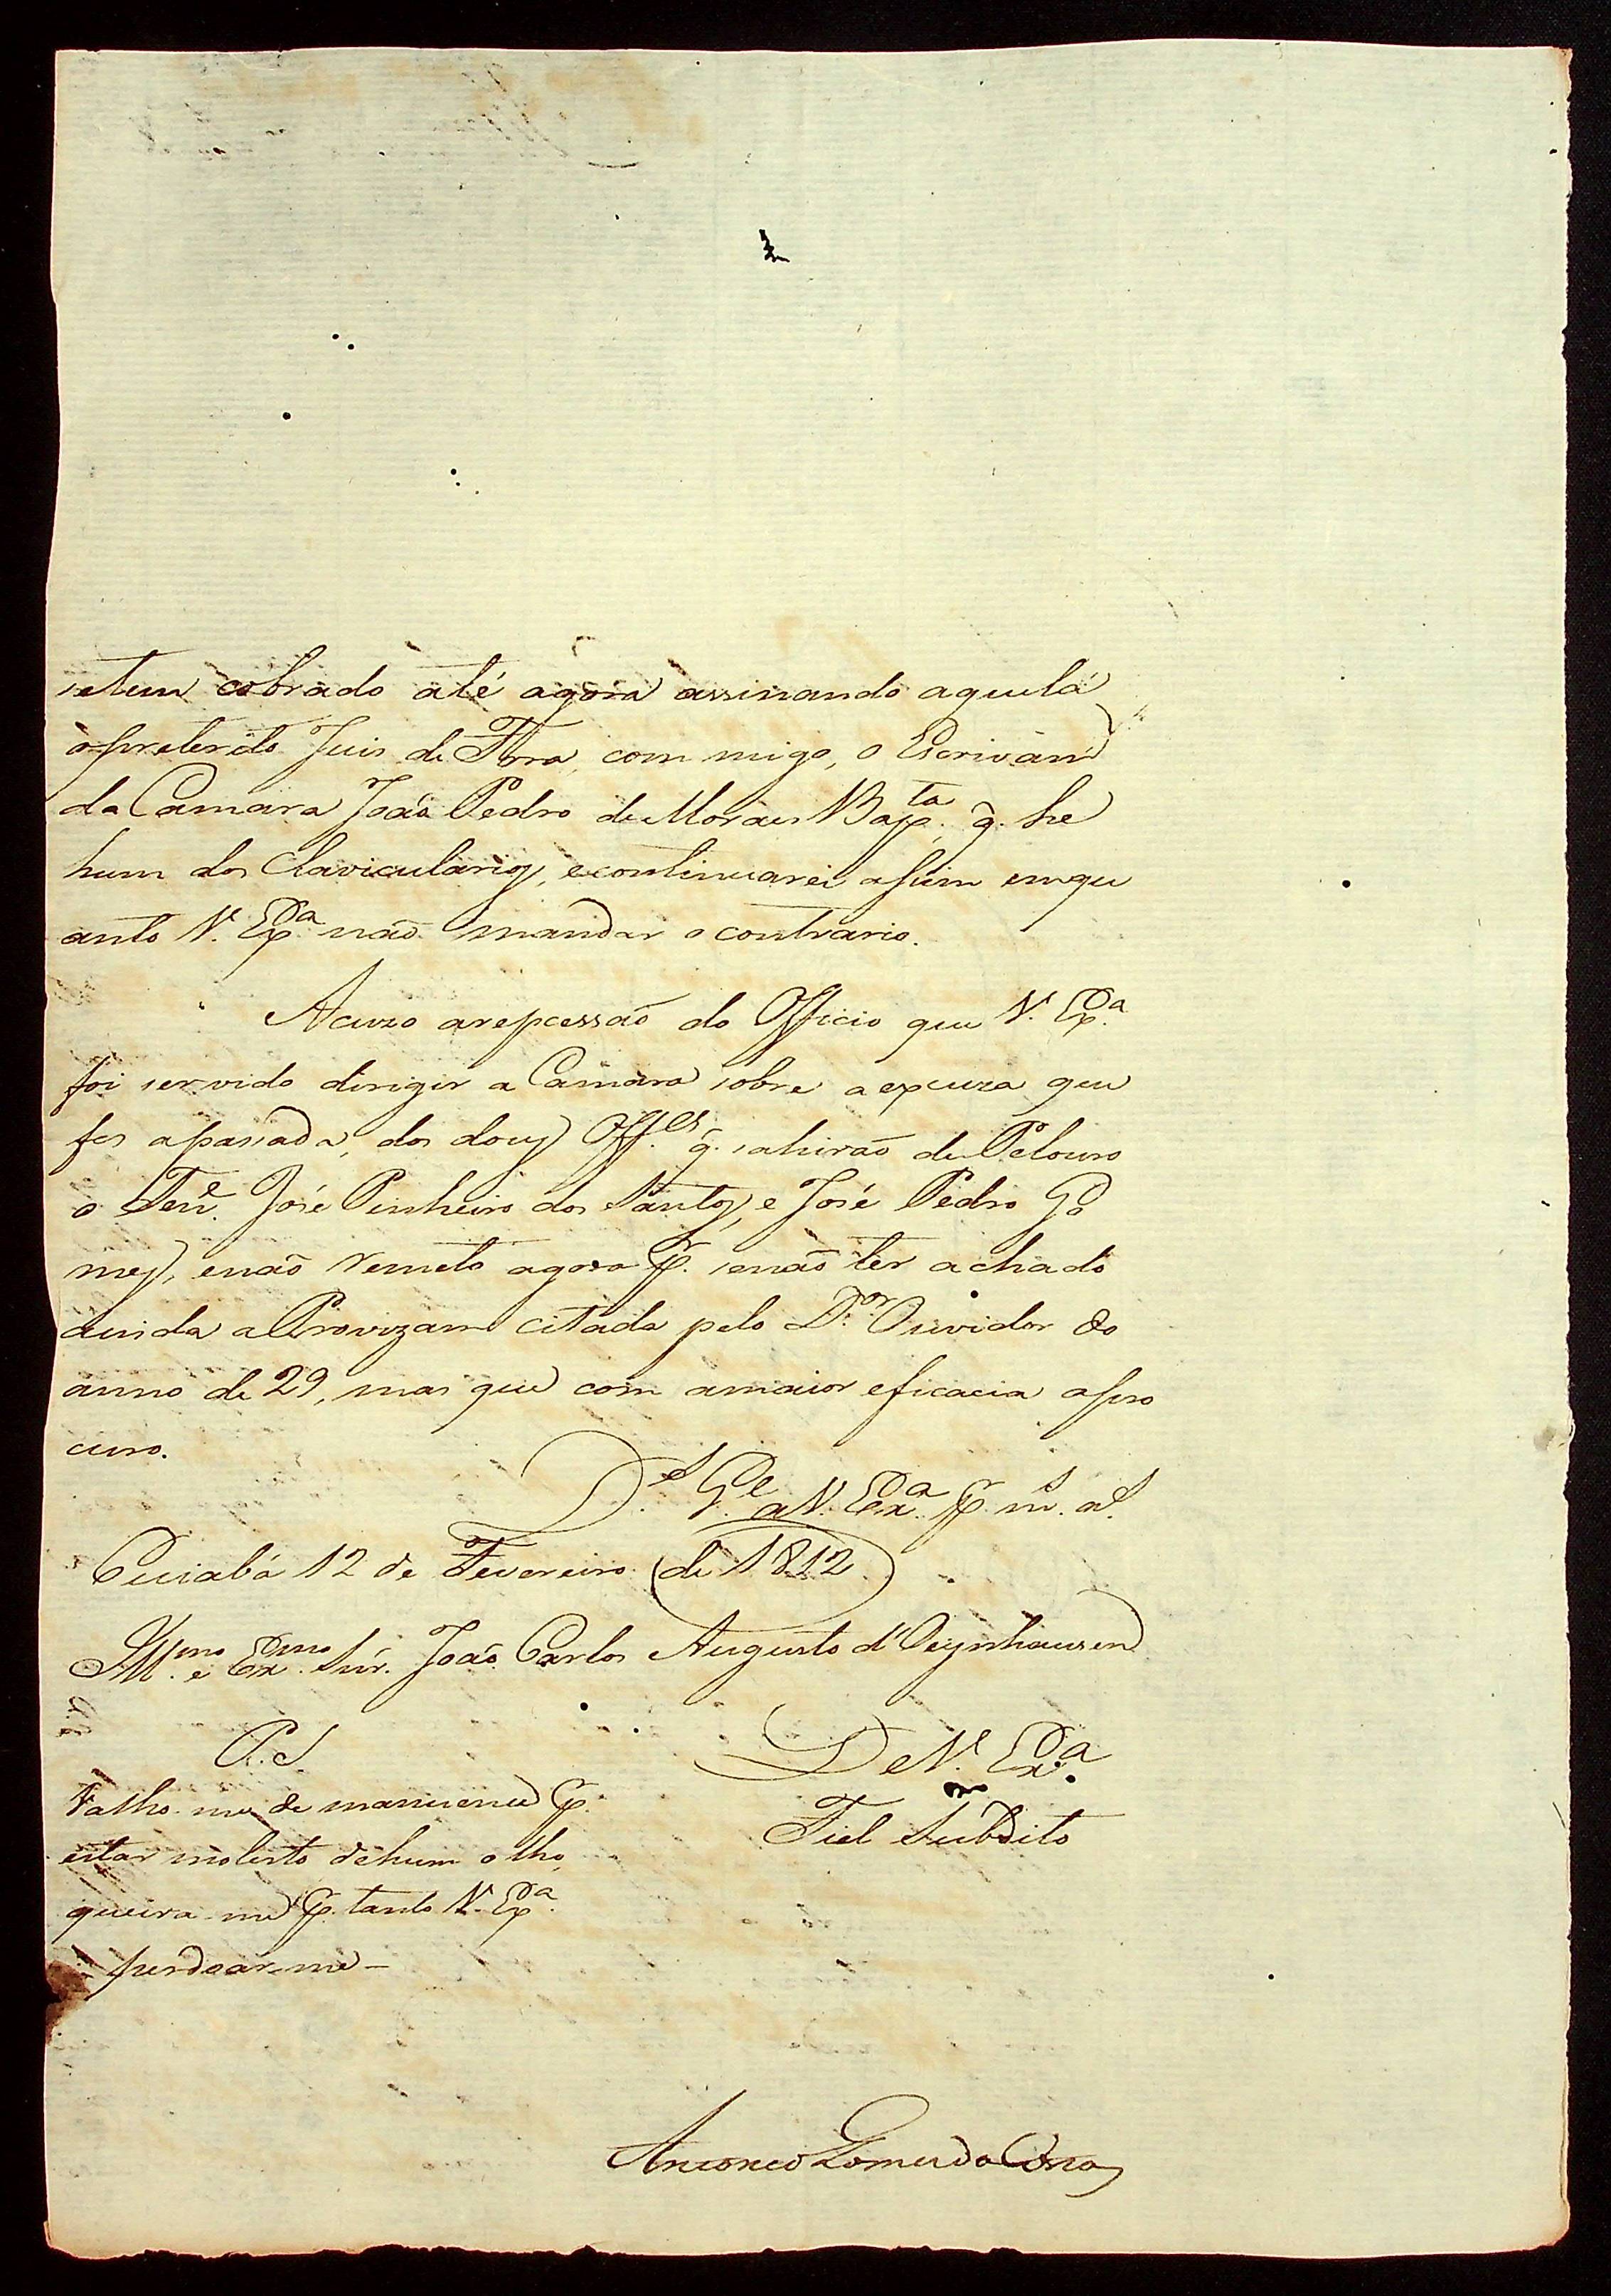 setem cobrado até agora assinando aquela
opreterito Juis de Fora, com migo, o Escrivam
da Camara João Pedro de Moraes Bap.ta q. he
hum dos Clavicularios, econtinuarei assim emqu
anto V. Ex.a não mandar o contrario.
Acuzo arepcessão do Officio que V. Ex.a
foi servido dirigir a Camara sobre aexcuza que
fes apassada, dos dous Off.es q. sahirão de Pelouro
o Ten.e José Pinheiro dos Santos, e José Pedro Go
mes, enão remeto agora p.r senão ter achado
ainda aProvizam citada pelo D.or Ouvidor do
anno de 29, mas que com amaior eficacia apro
curo.
D.s G.e a V. Ex.a p.r m.s a.s
Cuiabá 12 de Fevereiro de 1812
Ill.mo e Ex.mo Snr. João Carlos Augusto d'Oeynhausen
De V. Ex.a
Fiel Subdito
P. S.
Valho-me de p.r
estar molesto dehum olho,
queira-me p.r tanto V. Ex.a
perdoar-me-
Antonio Gomes da Costa